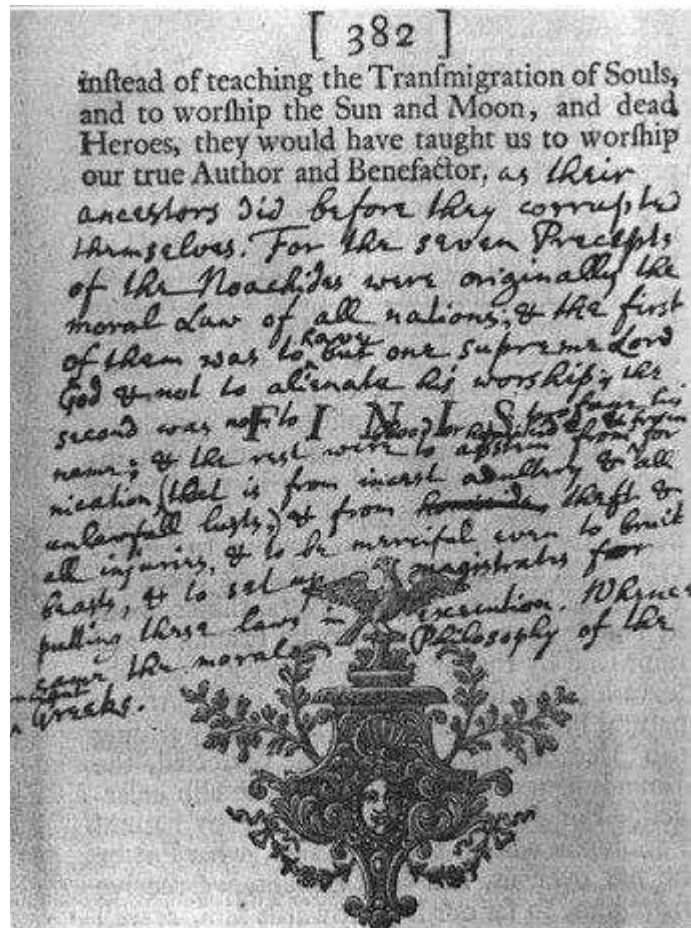 [ 382 ]
inſtead of teaching the Tranſmigration of Souls,
and to worſhip the Sun and Moon, and dead
Heroes, they would have taught us to worſhip
our true Author and Benefactor, as their
ancestors did before they corrupted
themselves. For the seven Precepts
of the Noachides were originally the
moral Law of all nations; & the first
of them was to have but one supreme Lord
God & not to alienate his worship; the
second was not to profane his
FINIS
name; & the rest were to abstain from blood or homicide & from for
nication, (that is from incest adultery & all
unlawfull lusts,) & from homicide theft &
all injuries, & to be merciful even to bruit
beasts, & to set up magistrates for
putting these laws in execution. Whence
came the moral Philosophy of the
ancient Greeks.